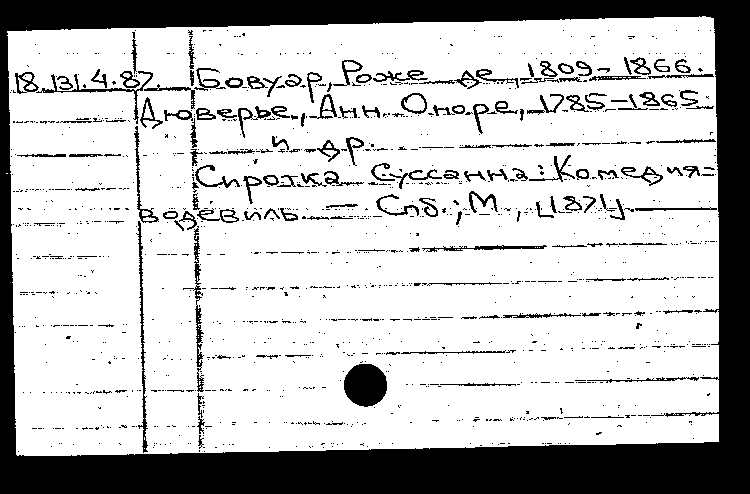 18.131.4.87. Бовуар, Роже де, 1809-1866.
Дюверье, Анн Оноре, 1785-1865
и др.
Сиротка Суссанна: Комедия-
водевиль. — Спб.; М., [1871].